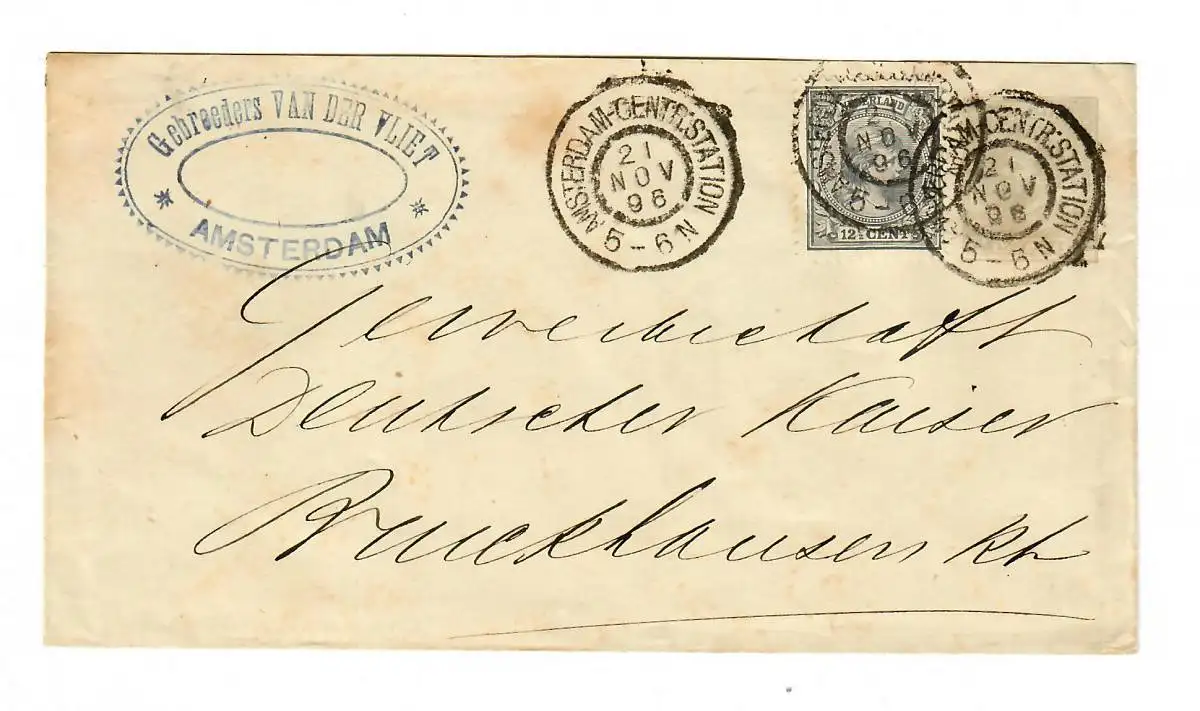 Gebroeders VAN DER VLIET
AMSTERDAM
AMSTERDAM-CENTR:STATION
21
NOV
96
5-6N
NEDERLAND
12½ CENT
AMSTERDAM-CENTR:STATION
21
NOV
96
5-6N
Gewerkschaft
Deutscher Kaiser
Bruckhausen Rh